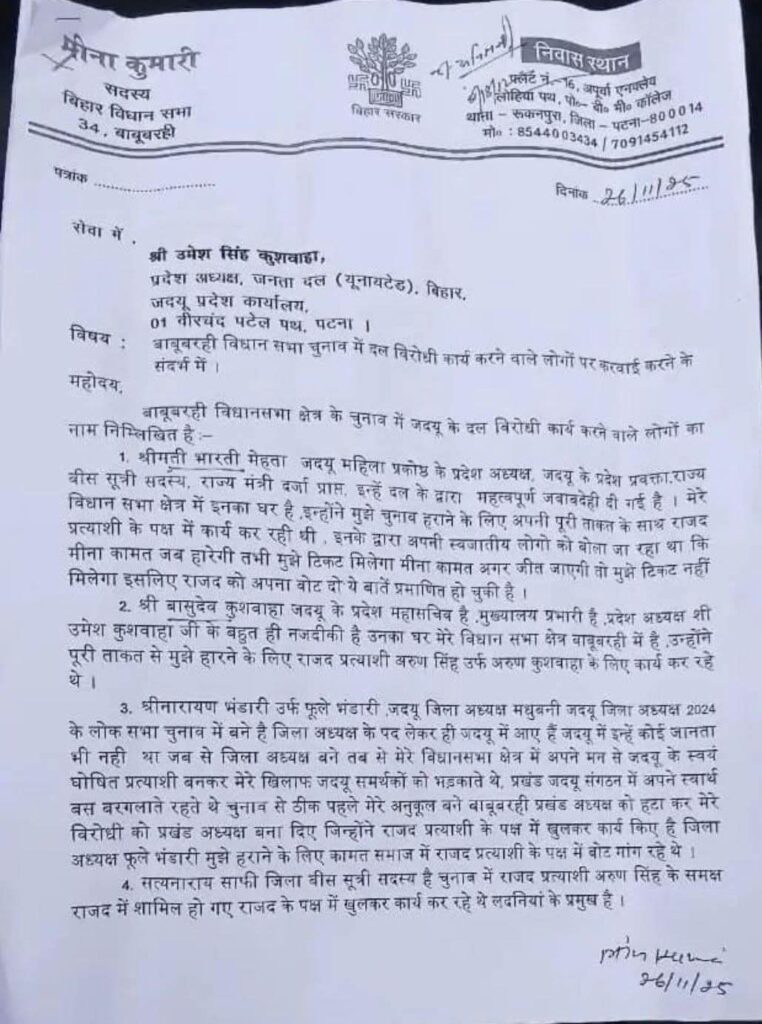 मीना कुमारी
सदस्य
बिहार विधान सभा
34, बाबूबरही
बिहार सरकार
निवास स्थान
फ्लैट नं.-16, अपूर्वा एनक्लेव
लोहिया पथ, पो०- बी० भी० कॉलेज
थाना - रूकनपुरा, जिला - पटना-800014
मो० : 8544003434 / 7091454112
पत्रांक ..............................
दिनांक 26/11/25
सेवा में ,
श्री उमेश सिंह कुशवाहा,
प्रदेश अध्यक्ष, जनता दल (यूनायटेड), बिहार,
जदयू प्रदेश कार्यालय,
01 वीरचंद पटेल पथ, पटना ।
विषय : बाबूबरही विधान सभा चुनाव में दल विरोधी कार्य करने वाले लोगों पर करवाई करने के
संदर्भ में ।
महोदय,
बाबूबरही विधानसभा क्षेत्र के चुनाव में जदयू के दल विरोधी कार्य करने वाले लोगों का
नाम निम्लिखित है :-
1. श्रीमती भारती मेहता जदयू महिला प्रकोष्ठ के प्रदेश अध्यक्ष, जदयू के प्रदेश प्रवक्ता,राज्य
बीस सूत्री सदस्य, राज्य मंत्री दर्जा प्राप्त, इन्हें दल के द्वारा महत्वपूर्ण जवाबदेही दी गई है । मेरे
विधान सभा क्षेत्र में इनका घर है ,इन्होंने मुझे चुनाव हराने के लिए अपनी पूरी ताकत के साथ राजद
प्रत्याशी के पक्ष में कार्य कर रही थी , इनके द्वारा अपनी स्वजातीय लोगो को बोला जा रहा था कि
मीना कामत जब हारेगी तभी मुझे टिकट मिलेगा मीना कामत अगर जीत जाएगी तो मुझे टिकट नहीं
मिलेगा इसलिए राजद को अपना वोट दो ये बातें प्रमाणित हो चुकी है ।
2. श्री बासुदेव कुशवाहा जदयू के प्रदेश महासचिव है ,मुख्यालय प्रभारी है ,प्रदेश अध्यक्ष शी
उमेश कुशवाहा जी के बहुत ही नजदीकी है उनका घर मेरे विधान सभा क्षेत्र बाबूबरही में है ,उन्होंने
पूरी ताकत से मुझे हारने के लिए राजद प्रत्याशी अरुण सिंह उर्फ अरुण कुशवाहा के लिए कार्य कर रहे
थे ।
3. श्रीनारायण भंडारी उर्फ फूले भंडारी ,जदयू जिला अध्यक्ष मधुबनी जदयू जिला अध्यक्ष 2024
के लोक सभा चुनाव में बने है जिला अध्यक्ष के पद लेकर ही जदयू में आए हैं जदयू में इन्हें कोई जानता
भी नही था जब से जिला अध्यक्ष बने तब से मेरे विधानसभा क्षेत्र में अपने मन से जदयू के स्वयं
घोषित प्रत्याशी बनकर मेरे खिलाफ जदयू समर्थकों को भड़काते थे, प्रखंड जदयू संगठन में अपने स्वार्थ
बस बरगलाते रहते थे चुनाव से ठीक पहले मेरे अनुकूल बने बाबूबरही प्रखंड अध्यक्ष को हटा कर मेरे
विरोधी को प्रखंड अध्यक्ष बना दिए जिन्होंने राजद प्रत्याशी के पक्ष में खुलकर कार्य किए है जिला
अध्यक्ष फूले भंडारी मुझे हराने के लिए कामत समाज में राजद प्रत्याशी के पक्ष में वोट गांग रहे थे ।
4. सत्यनाराय साफी जिला बीस सूत्री सदस्य है चुनाव में राजद प्रत्याशी अरुण सिंह के समक्ष
राजद में शामिल हो गए राजद के पक्ष में खुलकर कार्य कर रहे थे लदनियां के प्रमुख है ।
26/11/25